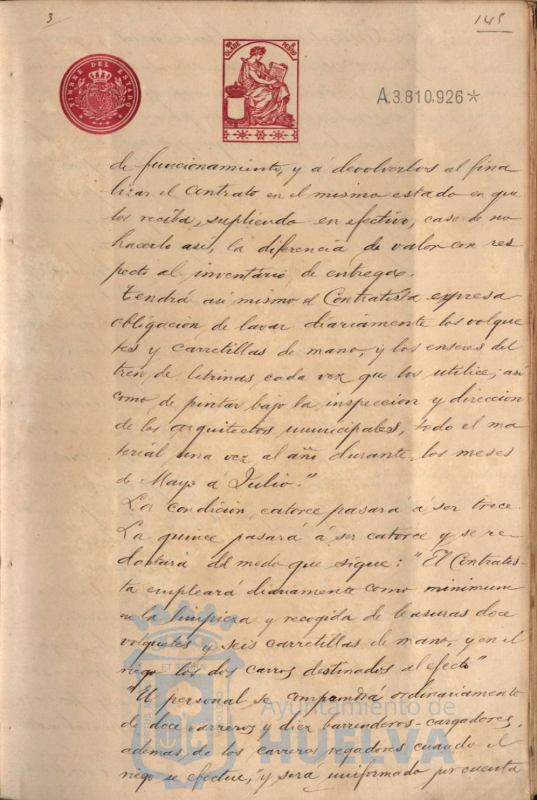 3
145
TIMBRE DEL ESTADO
CLASE
PESETAS
A.3.810.926*
de funcionamiento, y á devolverlos al fina
lizar el contrato en el mismo estado en que
los reciba, supliendo en efectivo, caso de no
hacerlo así, la diferencia de valor con res
pecto al inventario de entrega.
Tendrá así mismo el Contratista expresa
obligacion de lavar diariamente los volque
tes y carretillas de mano, y los enseres del
tren de letrinas cada vez que los utilice; así
como de pintar bajo la inspeccion y direccion
de los arquitectos municipales, todo el ma
terial una vez al año durante los meses
de Mayo á Julio."
La condición catorce pasará á ser trece
La quince pasará á ser catorce y se re
dactará del modo que sigue: "El Contratis-
ta empleará diariamente como minimum
en la limpieza y recogida de basuras doce
volquetes y seis carretillas de mano, y en el
riego los dos carros destinados al efecto"
"El personal se compondrá ordinariamente
de doce carreros y diez barrenderos-cargadores,
además de los carreros regadores cuando el
riego se efectue, y será uniformado por cuenta
Ayuntamiento de
HUELVA